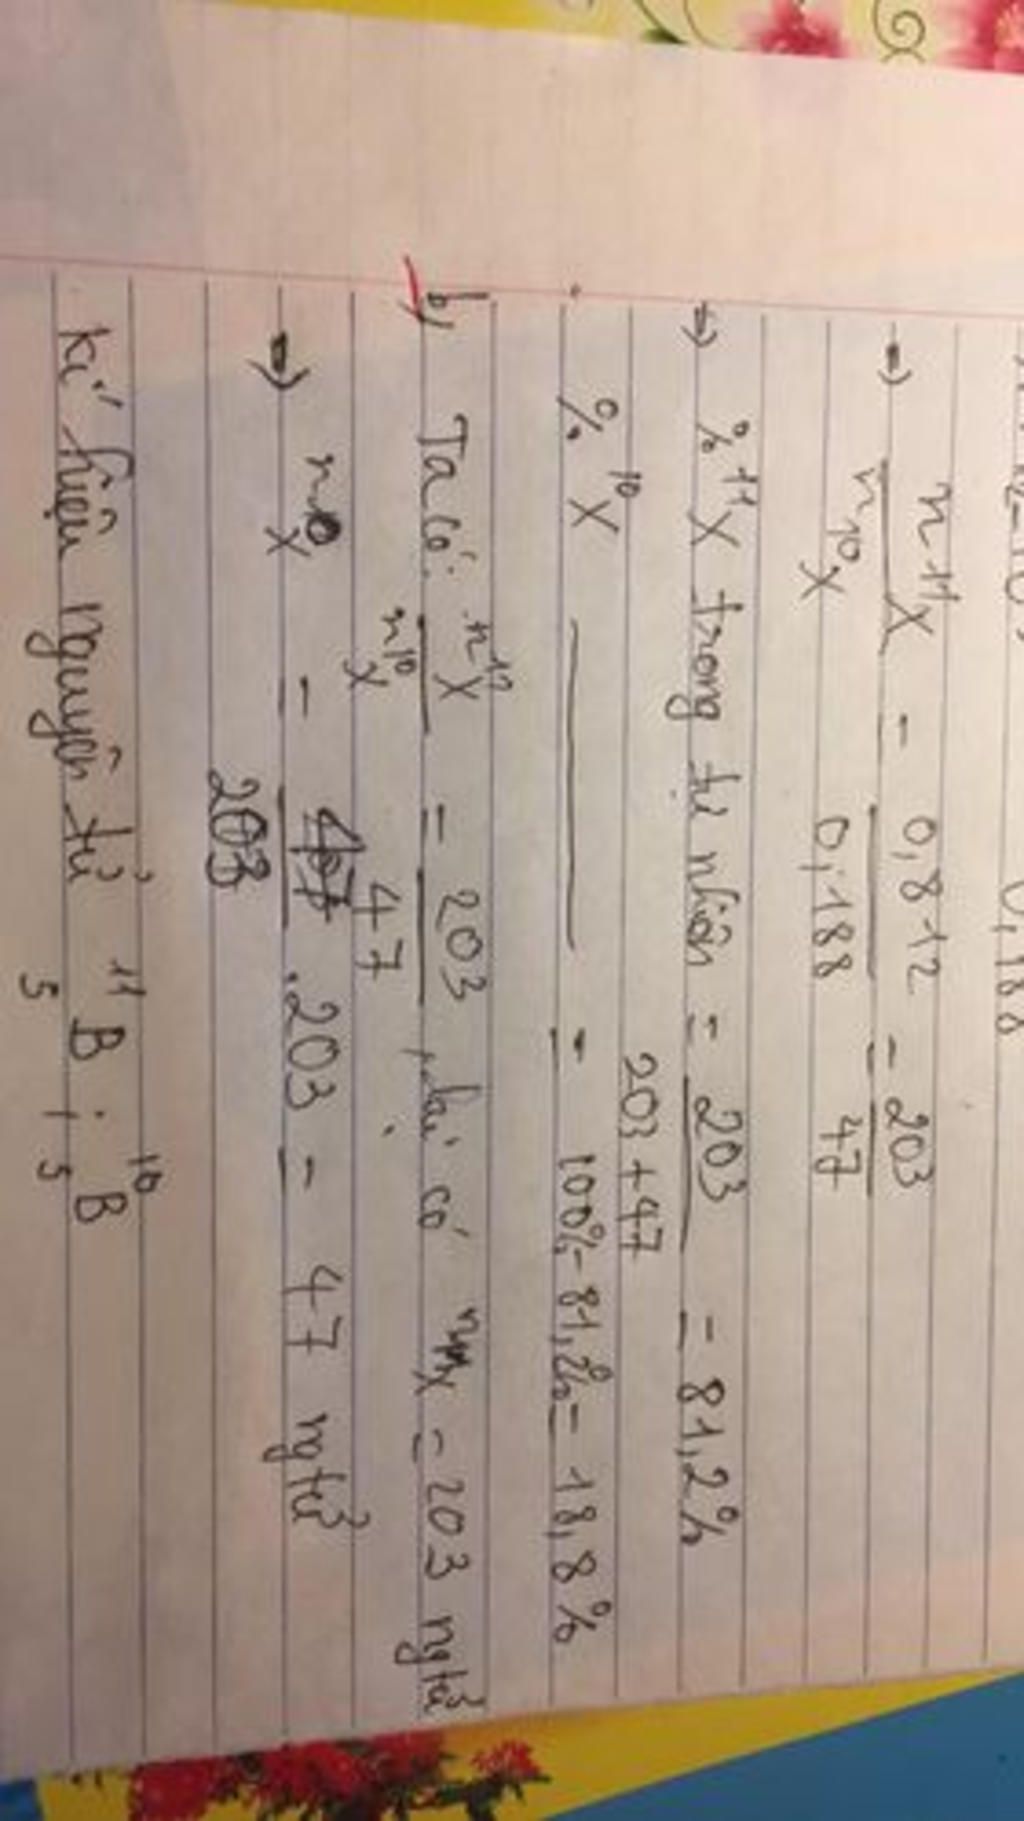 0,188
→ n¹¹X / n¹⁰X = 0,812 / 0,188 = 203 / 47
→ % ¹¹X trong tự nhiên = 203 / 203 + 47 = 81,2%
% ¹⁰X ——— = 100% - 81,2% = 18,8%
b) Ta có: n¹¹X / n¹⁰X = 203 / 47, lại có n¹¹X = 203 ngtử
→ n¹⁰X = 47 / 203 . 203 = 47 ngtử
Kí hiệu nguyên tử ¹¹₅B ; ¹⁰₅B